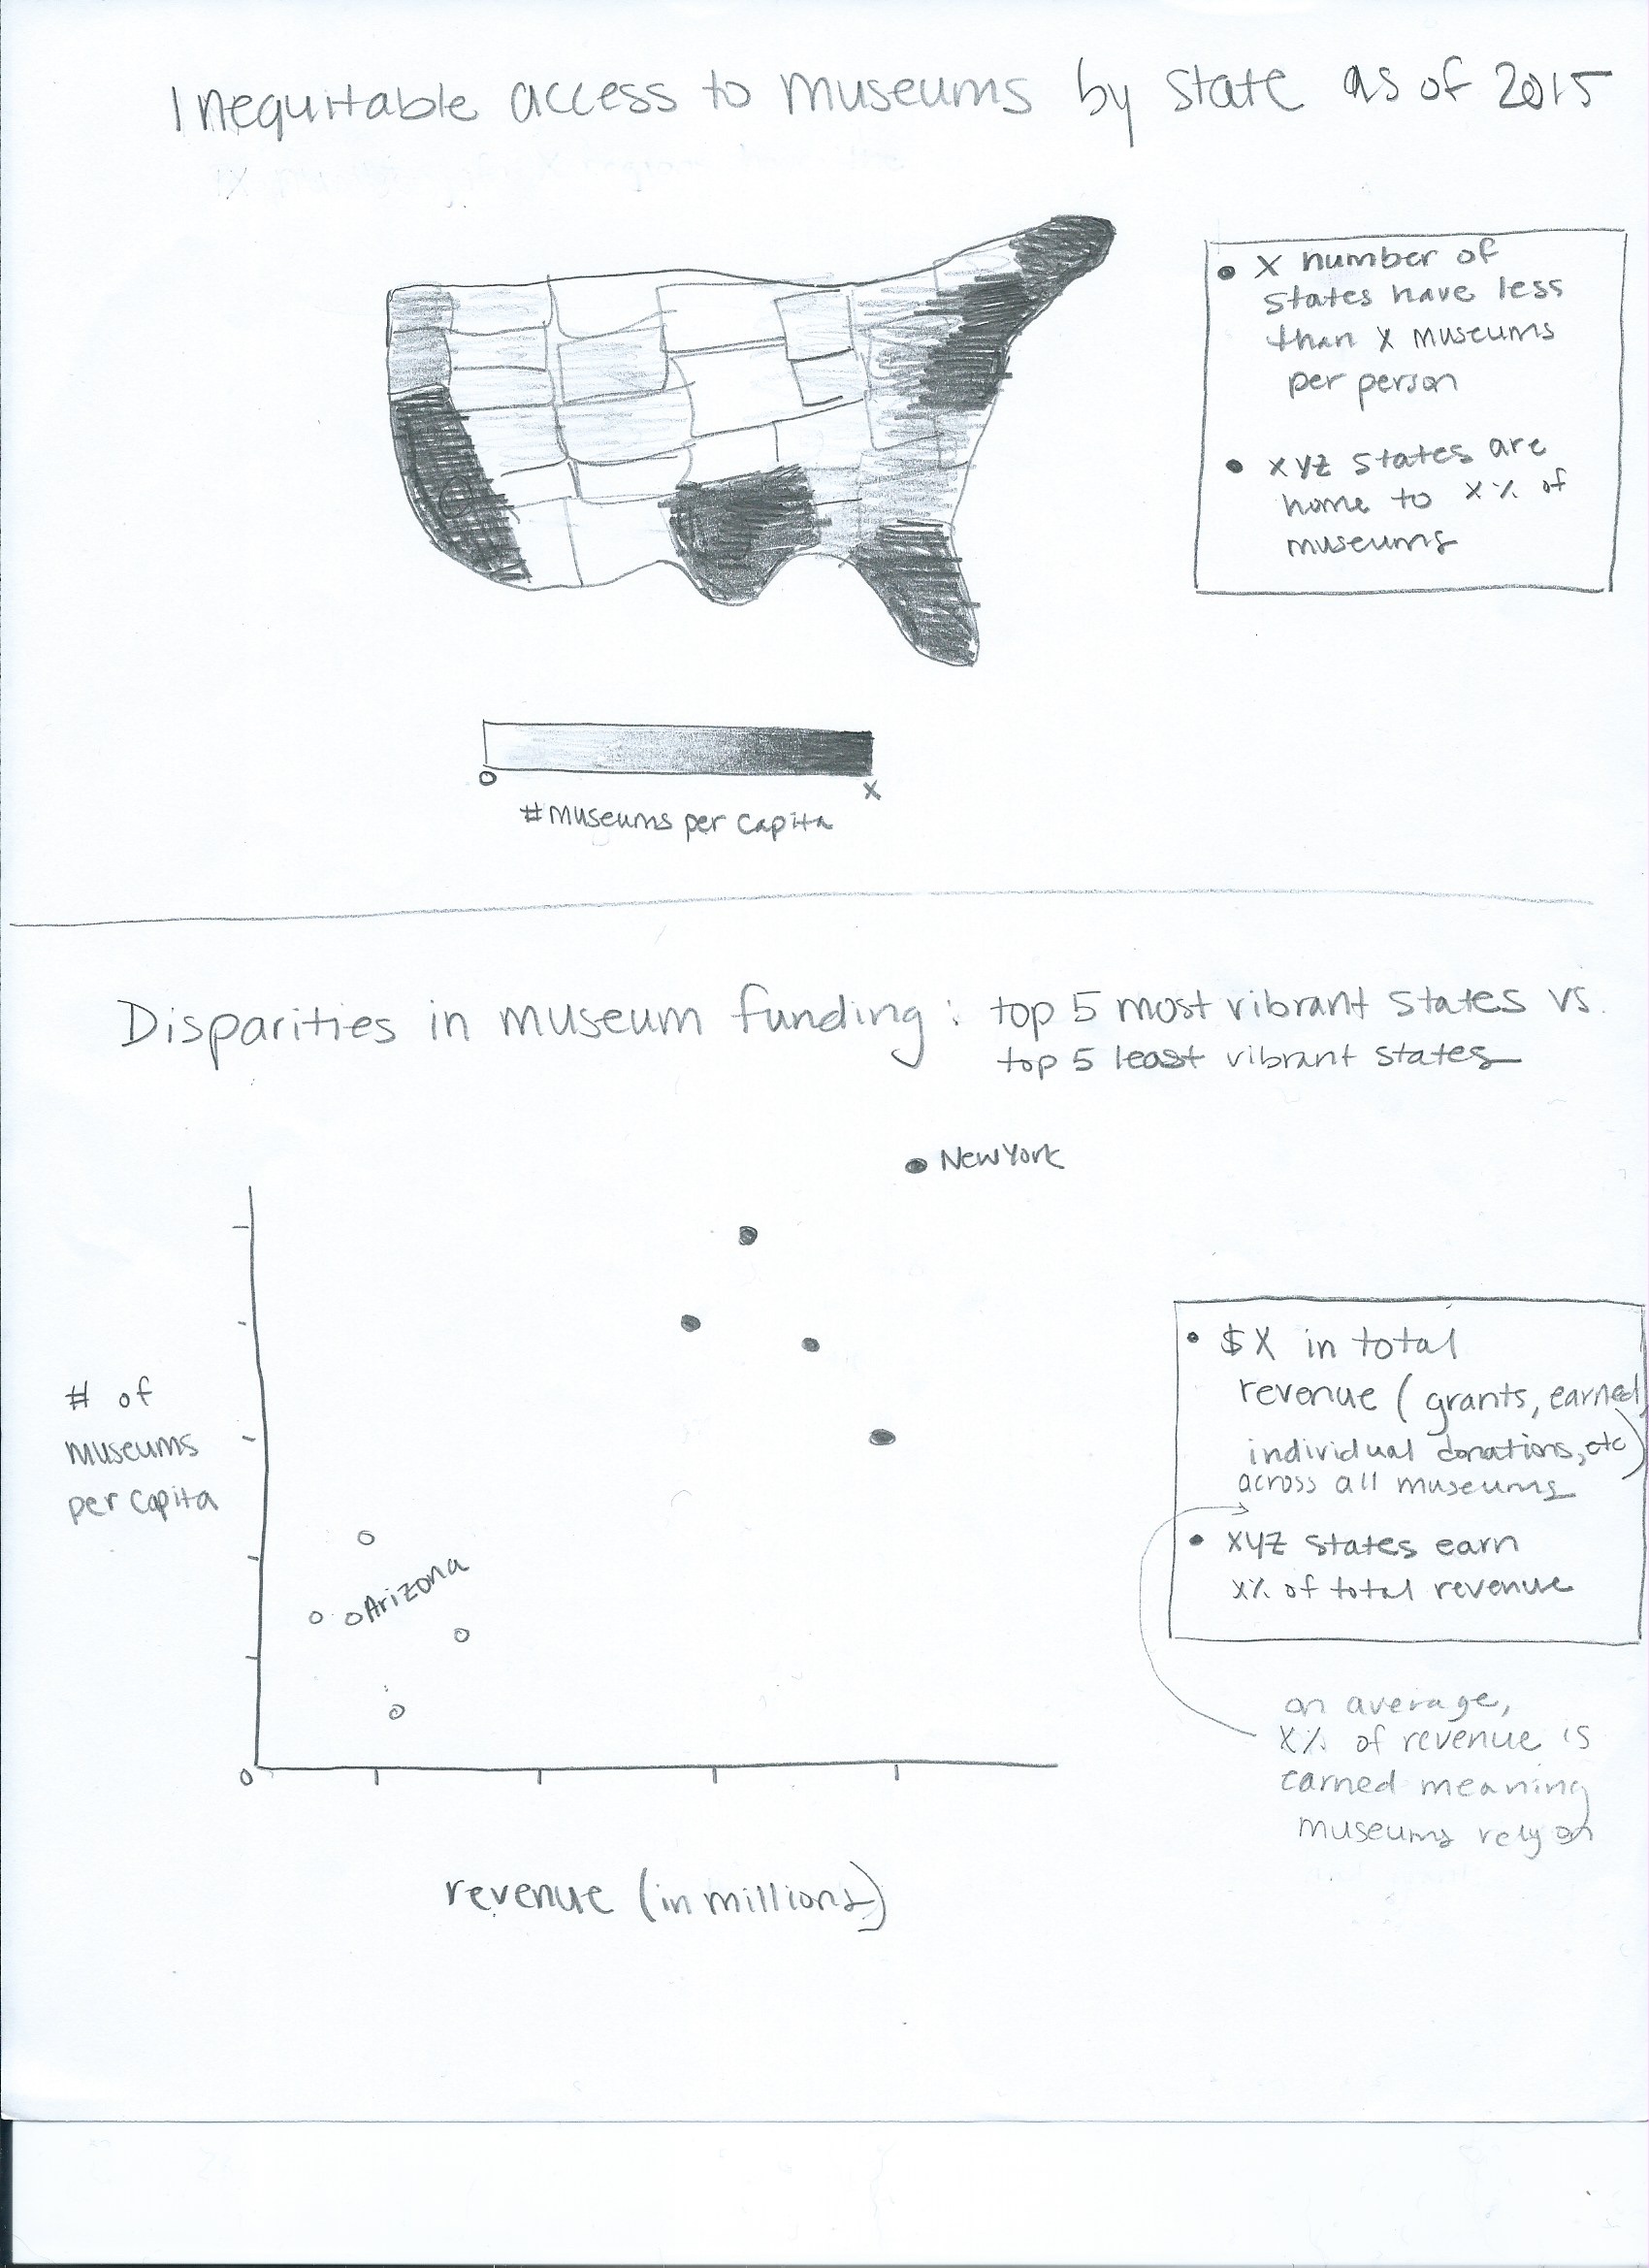 Inequitable access to museums by state as of 2015
• X number of
states have less
than X museums
per person
• XYZ states are
home to X% of
museums
0
X
#museums per capita
Disparities in museum funding: top 5 most vibrant states vs.
top 5 least vibrant states
New York
# of
museums
per capita
Arizona
0
revenue (in millions)
• $X in total
revenue (grants, earned,
individual donations, etc)
across all museums
• XYZ states earn
X% of total revenue
on average,
X% of revenue is
earned meaning
museums rely on